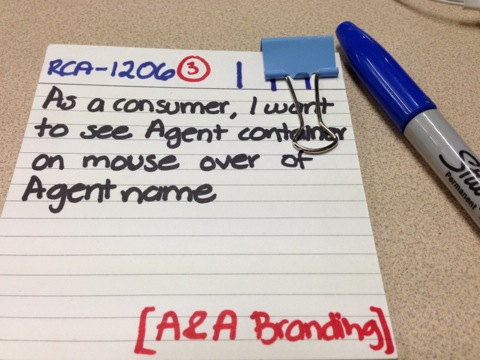 RCA-1206 3
As a consumer, I want
to see Agent container
on mouse over of
Agent name
[A&A Branding]
Permanent